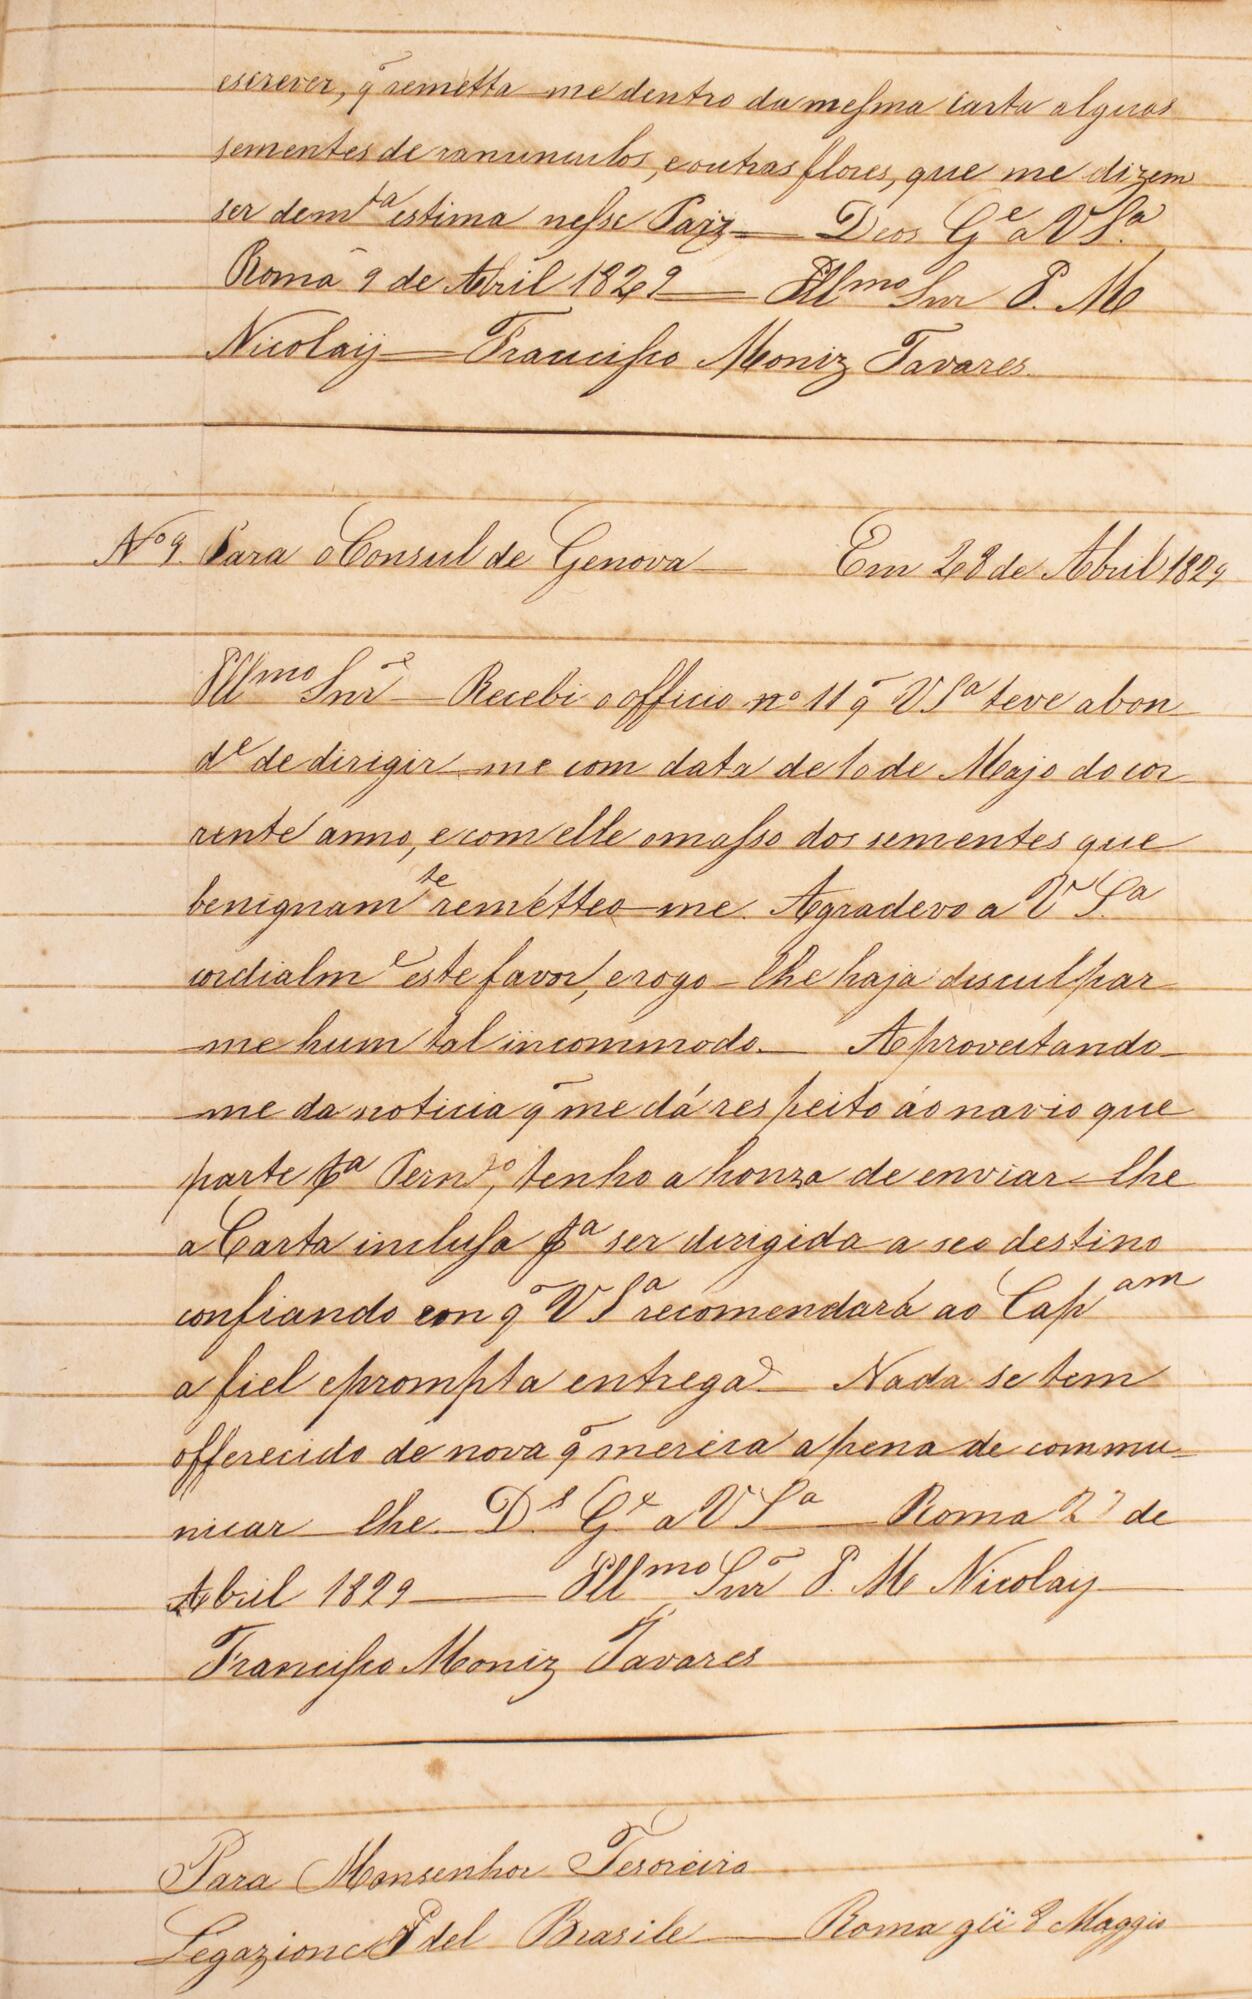 escrever, q̃ remetta-me dentro da mesma carta alguas
sementes de ranunculos, e outras flores, que me dizem
ser de mta estima nesse Paiz — Deos Ge a V Sa.
Roma 9 de Abril 1829 — Illmo Snr P. M
Nicolaÿ — Francisco Moniz Tavares.
No 9. Para o Consul de Genova — Em 28 de Abril 1829
Illmo Snr — Recebi o officio no 11 q̃ V Sa teve a bon-
de de dirigir-me com data de 10 de Majo do cor-
rente anno, e com elle o masso dos sementes que
benignamte remétteo-me. Agradevo a V S.a
cordialme este favor, e rogo-lhe haja disculpar
-me hum tal incommodo. — Aproveitando-
-me da noticia q̃ me dá respeito áo navio que
parte pa Perno, tenho a honza de enviar-lhe
a Carta inclusa pa ser dirigida a seo destino
confiando con q̃ V Sa recomendará ao Capam
a fiel e prompta entrega. — Nada se tem
offerecido de nova q̃ mereca a pena de commu-
nicar-lhe. Ds Ge a V Sa — Roma 27 de
Abril 1829 — Illmo Snr P. M Nicolaÿ —
Francisco Moniz Tavares
Para Monsenhor Tesoreiro
Legazione del Brasile — Roma gli 8 Maggio